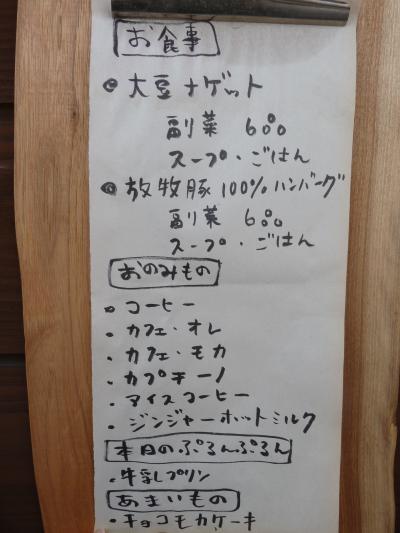 お食事
◎ 大豆ナゲット
副菜 600
スープ・ごはん
◎ 放牧豚100%ハンバーグ
副菜 600
スープ・ごはん
おのみもの
・コーヒー
・カフェ・オレ
・カフェ・モカ
・カプチーノ
・アイスコーヒー
・ジンジャーホットミルク
本日のぷるんぷるん
・牛乳プリン
あまいもの
・チョコモカケーキ